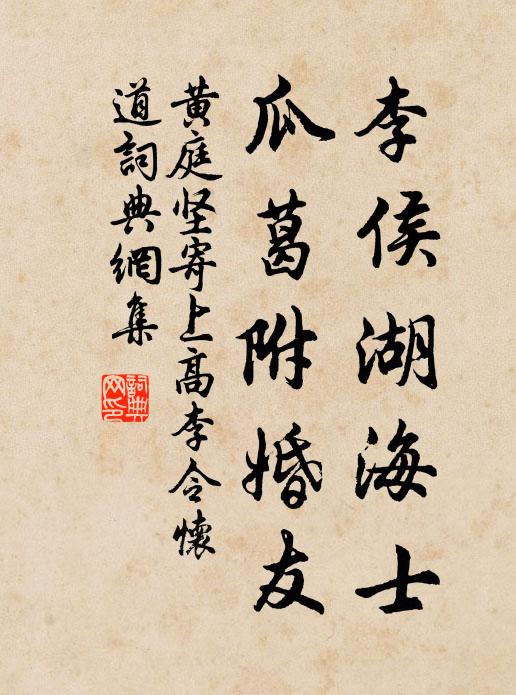 李侯湖海士
瓜葛附婚友
黄庭坚寄上高李令懷
道詞典網集
詞典
网印